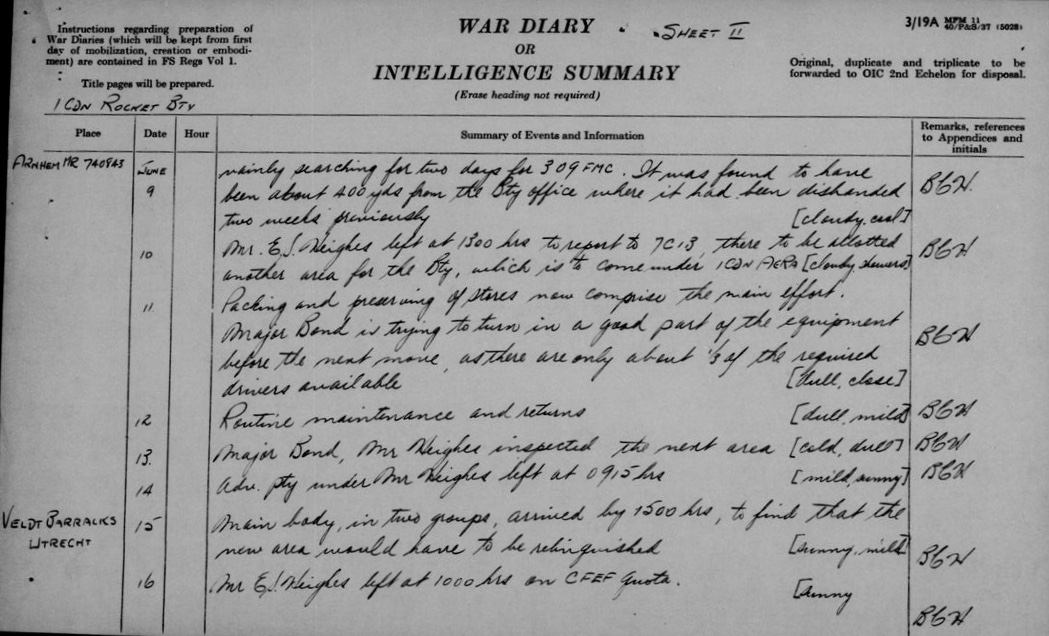 Instructions regarding preparation of
War Diaries (which will be kept from first
day of mobilization, creation or embodi-
ment) are contained in FS Regs Vol 1.
Title pages will be prepared.
1 CDN ROCKET BTY
WAR DIARY
OR
INTELLIGENCE SUMMARY
(Erase heading not required)
SHEET II
3/19A MFM 11
40/P&S/37 (5028)
Original, duplicate and triplicate to be
forwarded to OIC 2nd Echelon for disposal.
Place Date Hour Summary of Events and Information Remarks, references
to Appendices and
initials
ARNHEM MR 740843 JUNE vainly searching for two days for 309 FMC. It was found to have
9 been about 400 yds from the Bty office where it had been disbanded BGH.
two weeks previously [cloudy, cool]
10 Mr. E.J. Heighes left at 1300 hrs to report to 7C13, there to be allotted BGH
another area for the Bty, which is to come under 1 CDN AGRA [cloudy, showers]
11 Packing and preserving of stores now comprise the main effort.
Major Bond is trying to turn in a good part of the equipment BGH
before the next move, as there are only about 1/3 of the required
drivers available [dull, close]
12 Routine maintenance and returns [dull, mild] BGH
13. Major Bond, Mr Heighes inspected the next area [cold, dull] BGH
14 Adv. pty under Mr Heighes left at 0915 hrs [mild, sunny] BGH
VELDT BARRACKS 15 Main body, in two groups, arrived by 1500 hrs, to find that the
UTRECHT new area would have to be relinquished [sunny, mild] BGH
16 Mr E.J. Heighes left at 1000 hrs on CFEF quota. [sunny
BGH